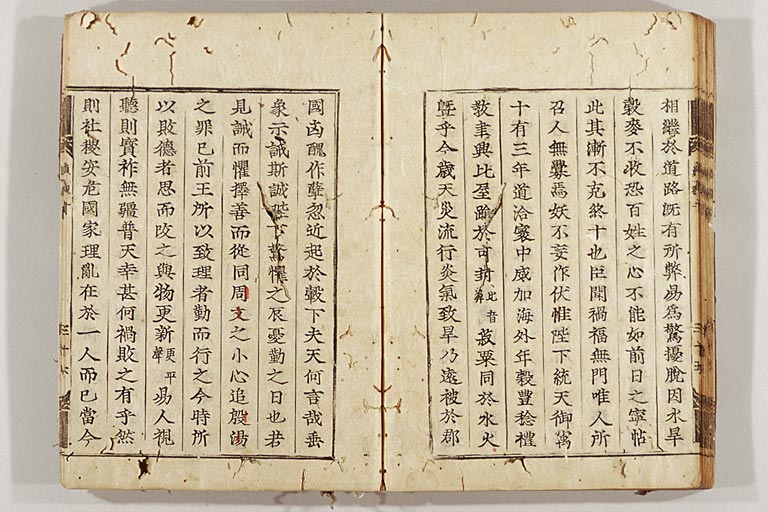 相繼於道路旣有所弊易爲驚擾脫因水旱
穀麥不收恐百姓之心不能如前日之寧帖
此其漸不克終十也臣聞禍福無門唯人所
召人無釁焉妖不妄作伏惟陛下統天御寓
十有三年道洽寰中威加海外年穀豐稔禮
敎聿興比屋踰於可封比音鼻菽粟同於水火
曁乎今歲天災流行炎氣致旱乃遠被於郡
國凶醜作孽忽近起於轂下夫天何言哉垂
象示誡斯誠陛下驚懼之辰憂勤之日也若
見誡而懼擇善而從同周文之小心追殷湯
之罪已前王所以致理者勤而行之今時所
以敗德者思而改之與物更新更平聲易人視
聽則寶祚無疆普天幸甚何禍敗之有乎然
則社稷安危國家理亂在於一人而已當今